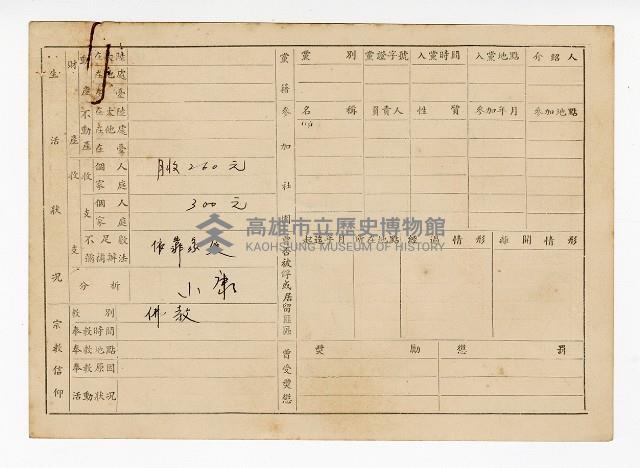 黨籍
黨別
黨證字號
入黨時間
入黨地點
介紹人
參加社團
名稱
負責人
性質
參加年月
參加地點
曾否被俘或居留匪區
起迄年月
所在地點
經過情形
離開情形
曾受獎懲
獎勵
懲罰
生活狀況
財產
動產
在大陸
在他處
在臺
不動產
在大陸
在他處
在臺
收支
收
個人
家庭
月收260元
支
個人
家庭
300元
不足數
彌補辦法
依靠
分析
小康
宗教信仰
教別
佛教
奉教時間
奉教地點
奉教原因
活動狀況
高雄市立歷史博物館
KAOHSIUNG MUSEUM OF HISTORY